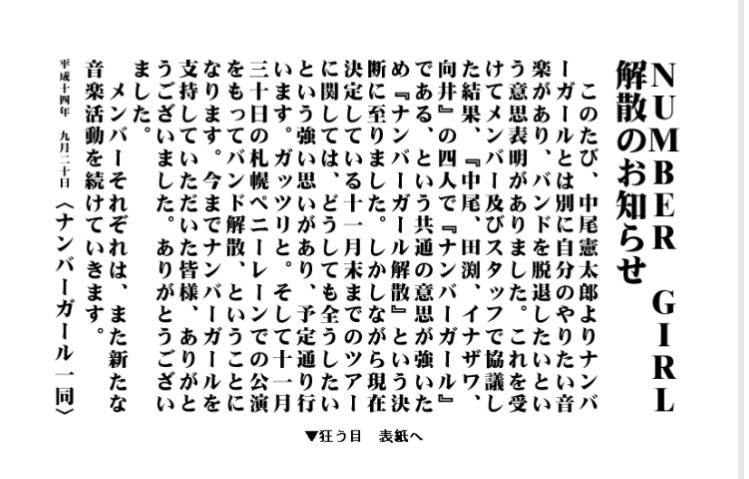 NUMBER GIRL
解散のお知らせ
このたび、中尾憲太郎よりナンバ
ーガールとは別に自分のやりたい音
楽があり、バンドを脱退したいとい
う意思表明がありました。これを受
けてメンバー及びスタッフで協議し
た結果、『中尾、田渕、イナザワ、
向井』の四人で『ナンバーガール』
である、という共通の意思が強いた
め『ナンバーガール解散』という決
断に至りました。しかしながら現在
決定している十一月末までのツアー
に関しては、どうしても全うしたい
という強い思いがあり、予定通り行
います。ガッツリと。そして十一月
三十日の札幌ペニーレーンでの公演
をもってバンド解散、ということに
なります。今までナンバーガールを
支持していただいた皆様、ありがと
うございました。ありがとうござい
ました。
メンバーそれぞれは、また新たな
音楽活動を続けていきます。
平成十四年 九月二十日 〈ナンバーガール一同〉
▼狂う目 表紙へ